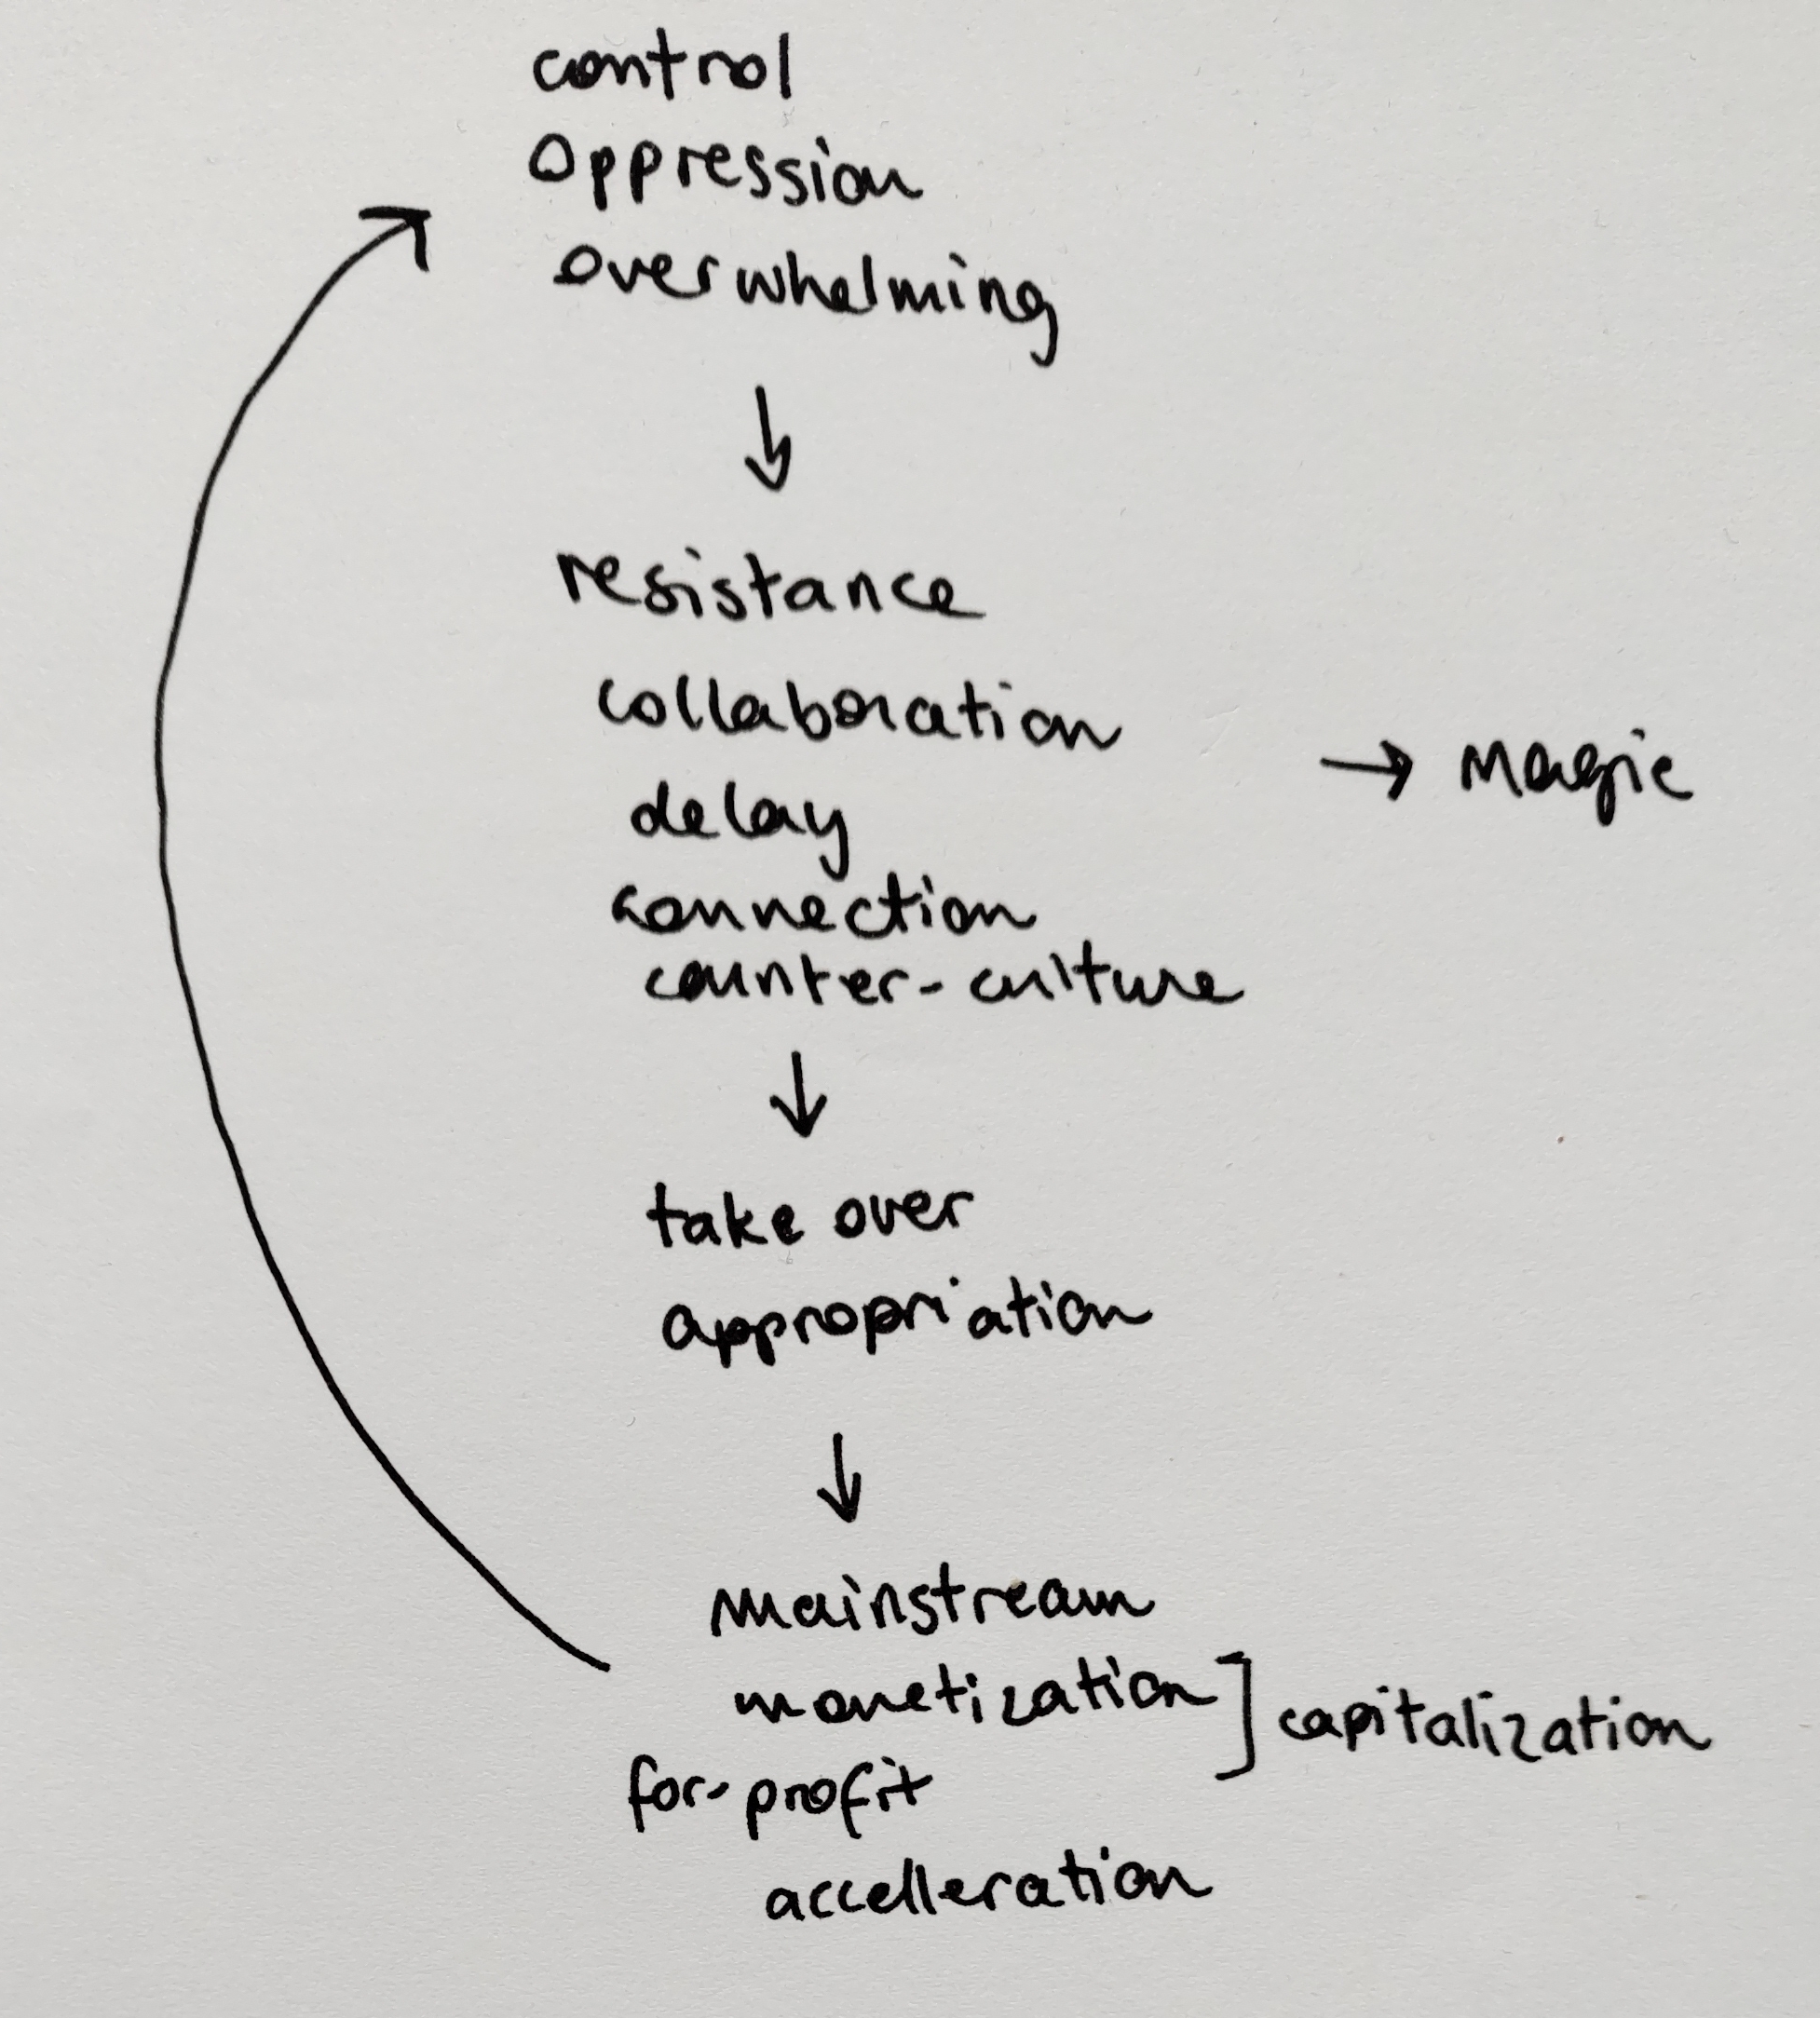 control
oppression
overwhelming
↓
resistance
collaboration
→ Magic
delay
connection
counter-culture
↓
take over
appropriation
↓
Mainstream
monetization
] capitalization
for-profit
accelleration